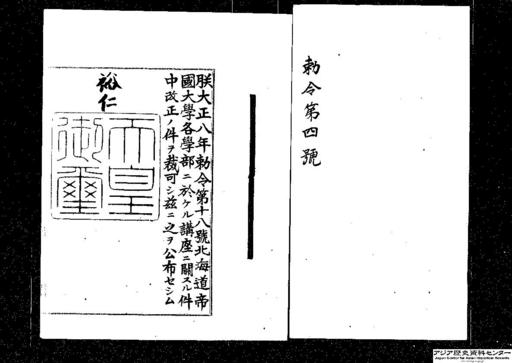 勅令第四號
朕大正八年勅令第十八號北海道帝
國大學各學部ニ於ケル講座ニ關スル件
中改正ノ件ヲ裁可シ茲ニ之ヲ公布セシム
裕仁
天皇
御璽
アジア歴史資料センター
Japan Center for Asian Historical Records